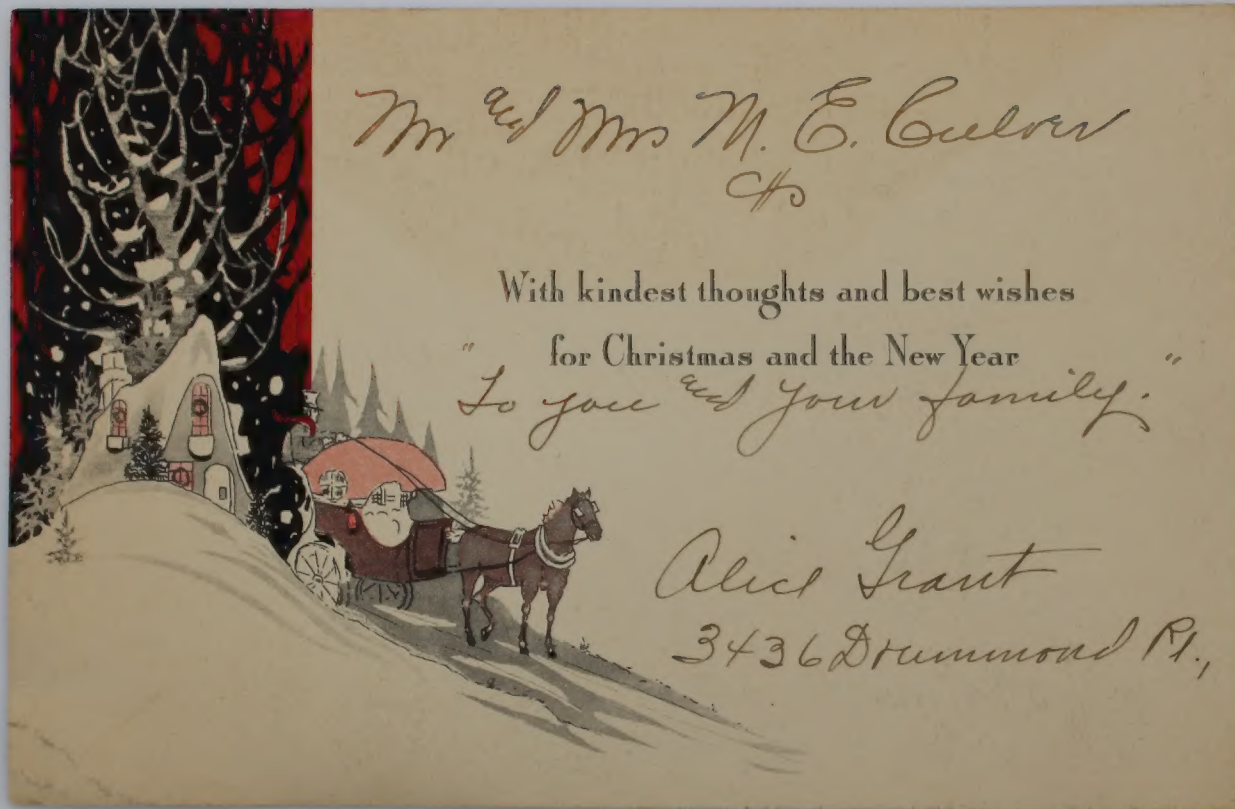 Mr and Mrs M. E. Culver
With kindest thoughts and best wishes
for Christmas and the New Year
"To you and your family."
Alice Grant
3436 Drummond Rd.,